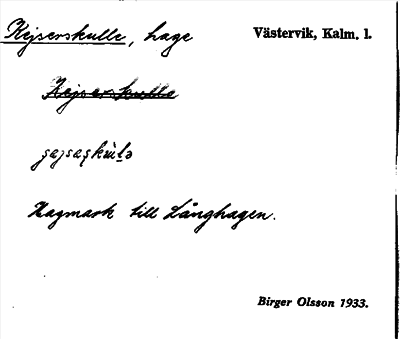 Kejserskulle, hage
Västervik, Kalm. l.
Kejserskulle
Hagmark till Långhagen.
Birger Olsson 1933.